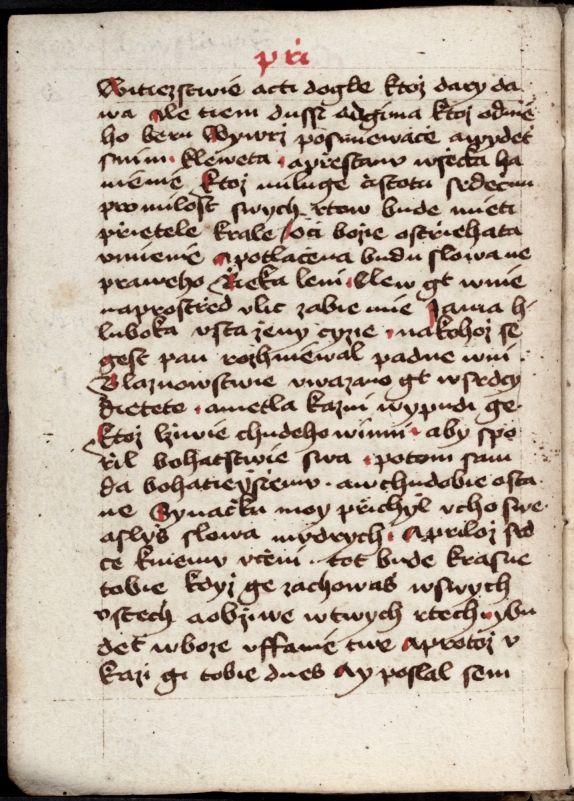 při
Witiezstwie a cti dogde ktoz dary da
wa Ale tiem dussi augima ktoz odnie
ho beru Wywrz posmiewace a wydet
snim kleweta a přestanu wsecka ha
nienie Ktoz miluge čistotu srdecnu
pro milost swych rtow bude mieti
přietele krale Oci bozie ostriehata
vmienie A potlacena budu slowa ne
praweho Rieka leni Lew gt wnie
naprostřed vlic zabie mie Jama h
luboka vsta zeny cyzie na kohoz se
gest pan rozhniewal padne wni
Blaznowstwie uwazano gt w srdcy
dietete a metla kazni wypudi ge
Ktoz lziwie chudeho winni aby spo
ril bohatstwie swa potom sam
da bohatieyssiemu a w chudobie osta
ne Synačku moy přichyl vcho swe
a slyš slowa mudrych A priloz srd
ce k memu vceni tot bude krasne
tobie kdyz ge zachowaš w swych
vstech a obziwe w twych rtech y bu
det w boze uffanie twe A protoz v
kazi gi tobie dnes Ay poslal sem